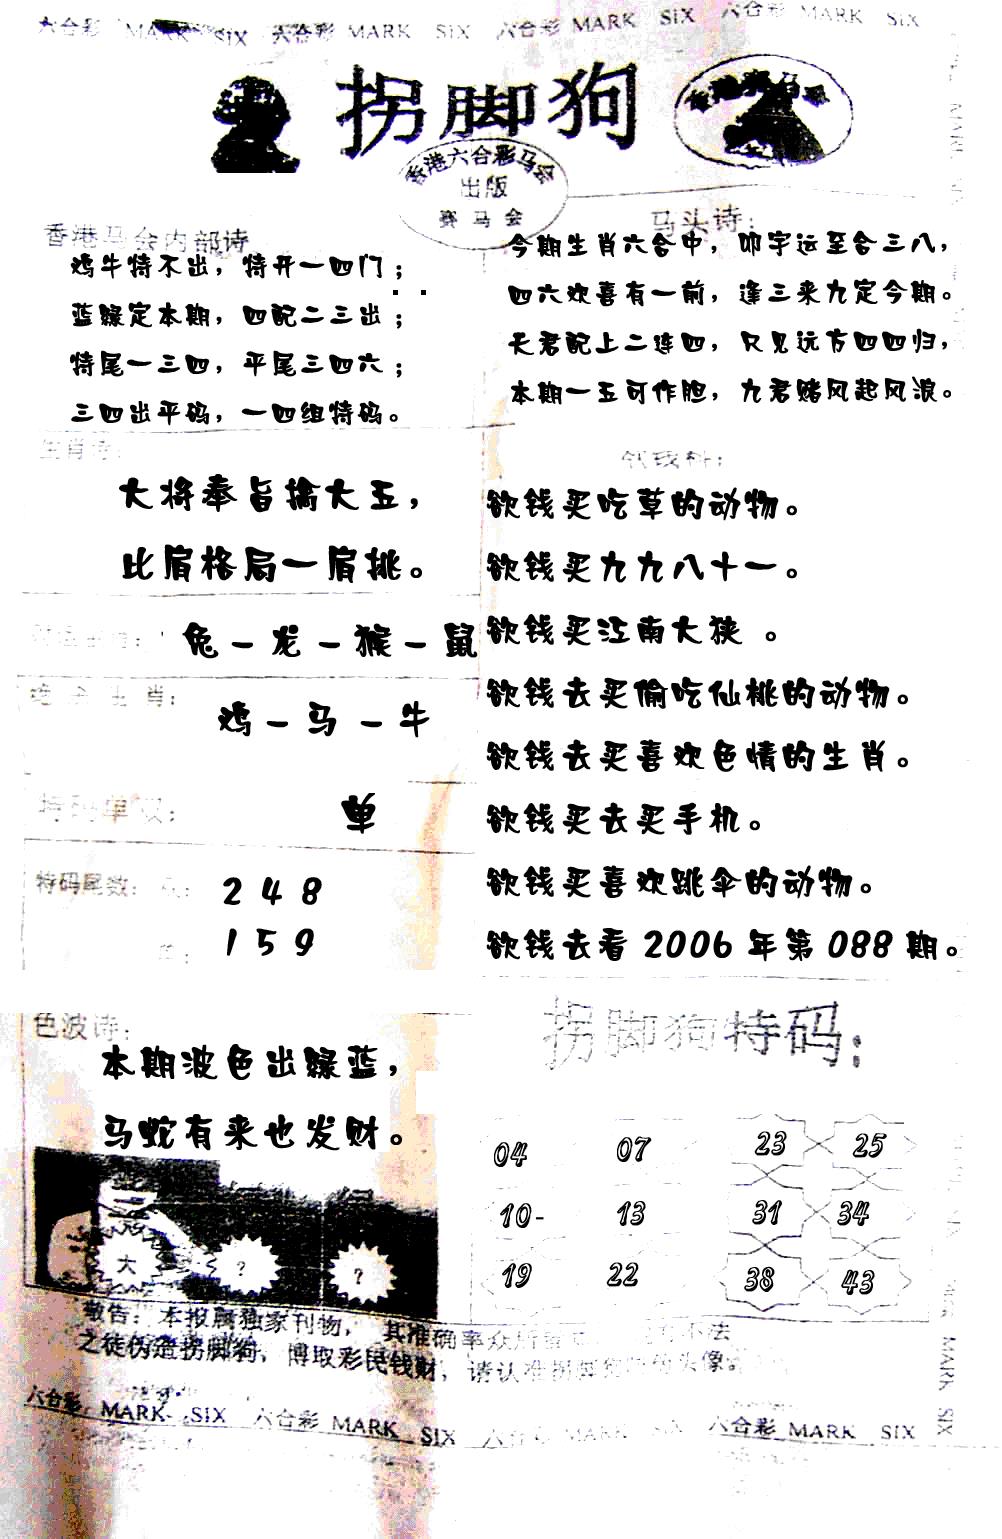 六合彩 MARK SIX 六合彩 MARK SIX 六合彩 MARK SIX 六合彩 MARK SIX
拐脚狗
香港六合彩马会
出版
赛马会
香港马会内部诗
鸡牛特不出，特开一四门；
蓝绿定本期，四配二三出；
特尾一三四，平尾三四六；
三四出平码，一四组特码。
马头诗：
今期生肖六合中，叩宇远至合三八，
四六欢喜有一前，逢三来九定今期。
天君配上二连四，只见远方四四归，
本期一五可作胆，九君赌风起风浪。
生肖诗：
大将奉旨擒大五，
比肩格局一肩挑。
兔－龙－猴－鼠
绝杀生肖：
鸡－马－牛
特码单双：
单
特码尾数：
2 4 8
1 5 9
欲钱料：
欲钱买吃草的动物。
欲钱买九九八十一。
欲钱买江南大狭 。
欲钱去买偷吃仙桃的动物。
欲钱去买喜欢色情的生肖。
欲钱买去买手机。
欲钱买喜欢跳伞的动物。
欲钱去看 2006 年第 088 期。
色波诗：
本期波色出绿蓝，
马蛇有来也发财。
大 ? ?
拐脚狗特码：
04 07 23 25
10- 13 31 34
19 22 38 43
敬告：本报属独家刊物，其准确率众所 不法
之徒伪造拐脚狗，博取彩民钱财，请认准拐脚狗 头像
六合彩 MARK SIX 六合彩 MARK SIX 六合彩 MARK SIX 六合彩 MARK SIX
MARK SIX